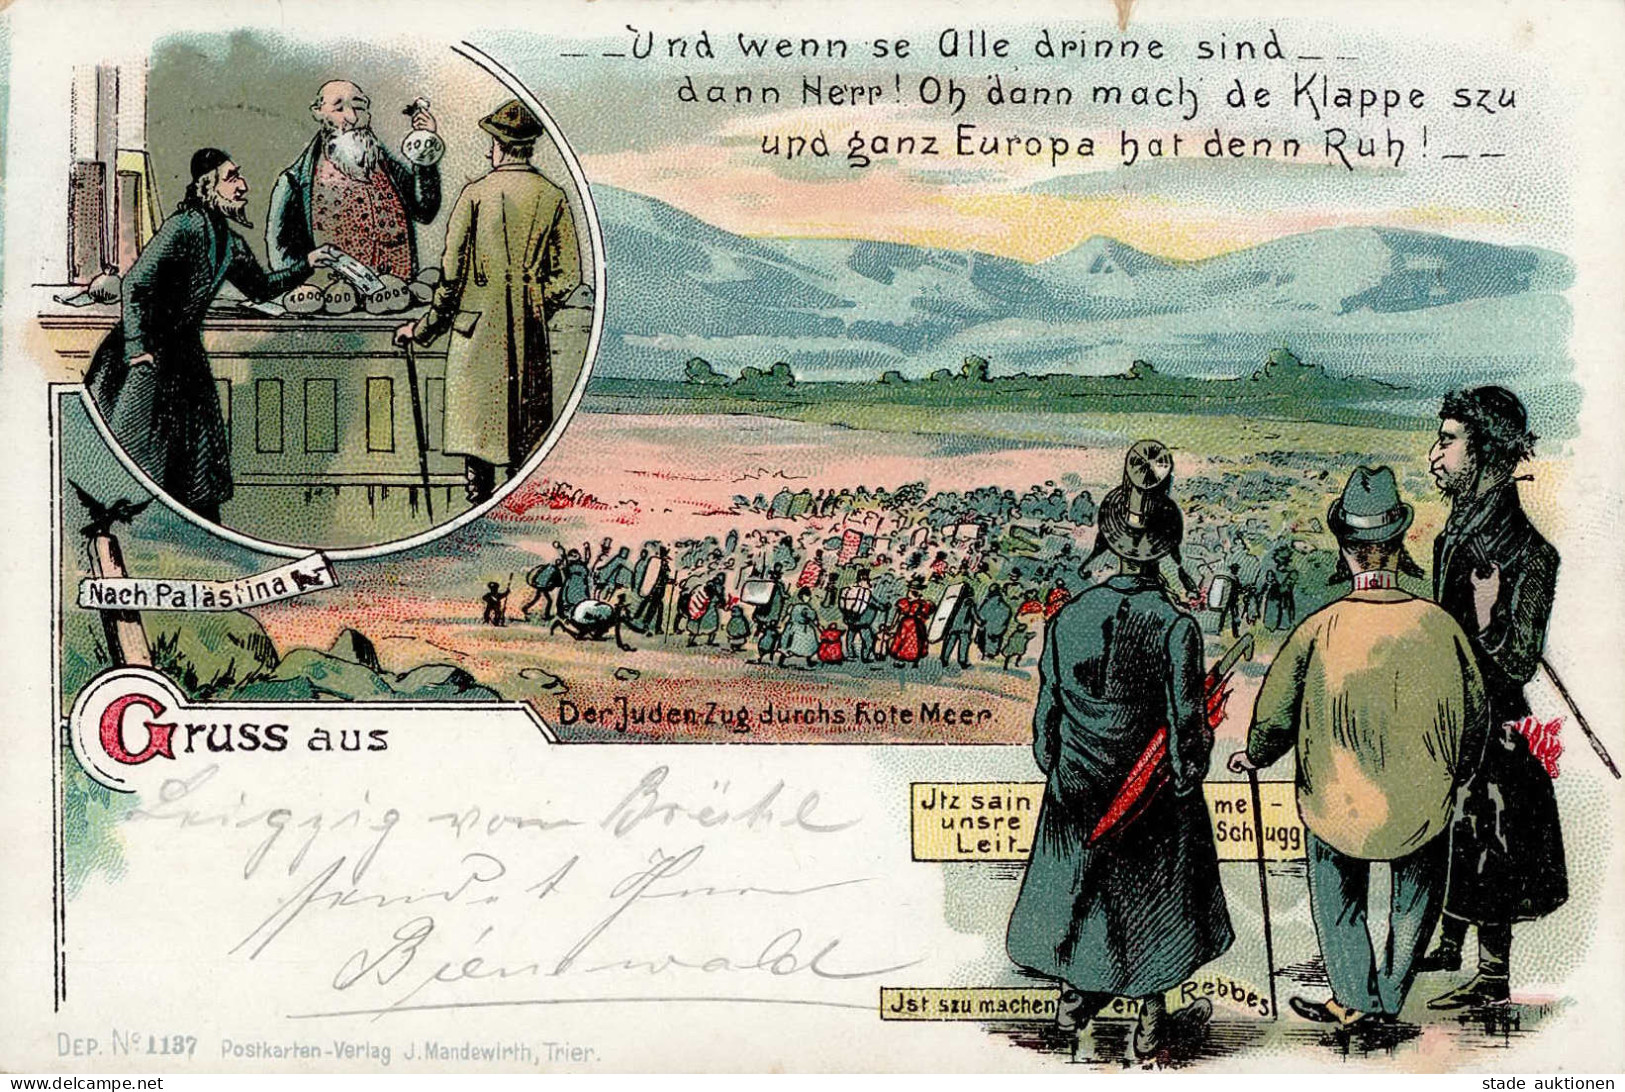 — —Und wenn se Alle drinne sind— —
dann Herr! Oh dann mach de Klappe szu
und ganz Europa hat denn Ruh!— —
1000
1000 000 10000
Nach Palästina
Der Juden-Zug durchs Rote Meer.
Gruss aus
Leipzig vom Brühl
sendet Ihnen
Bienewald
Jtz sain me-
unsre Schugg
Leit_
Jst szu machen en Rebbes
DEP. No 1137 Postkarten-Verlag J. Mandewirth, Trier.
stade auktionen